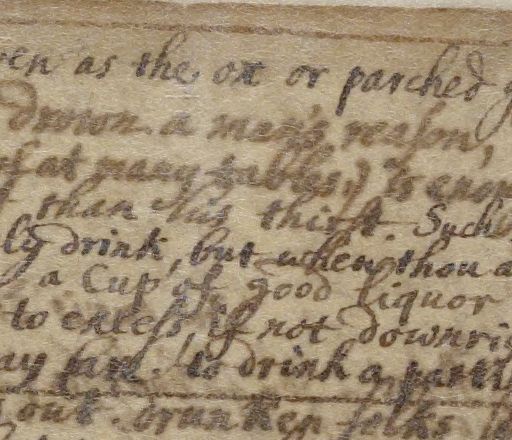 en as the ox or parched g
drown a man's reason,
at many tables,) to
than his thirst. Such
ly drink, but when thou a
a Cup of good liquor
to excess, if not downri
ay to drink a
out drunken folks